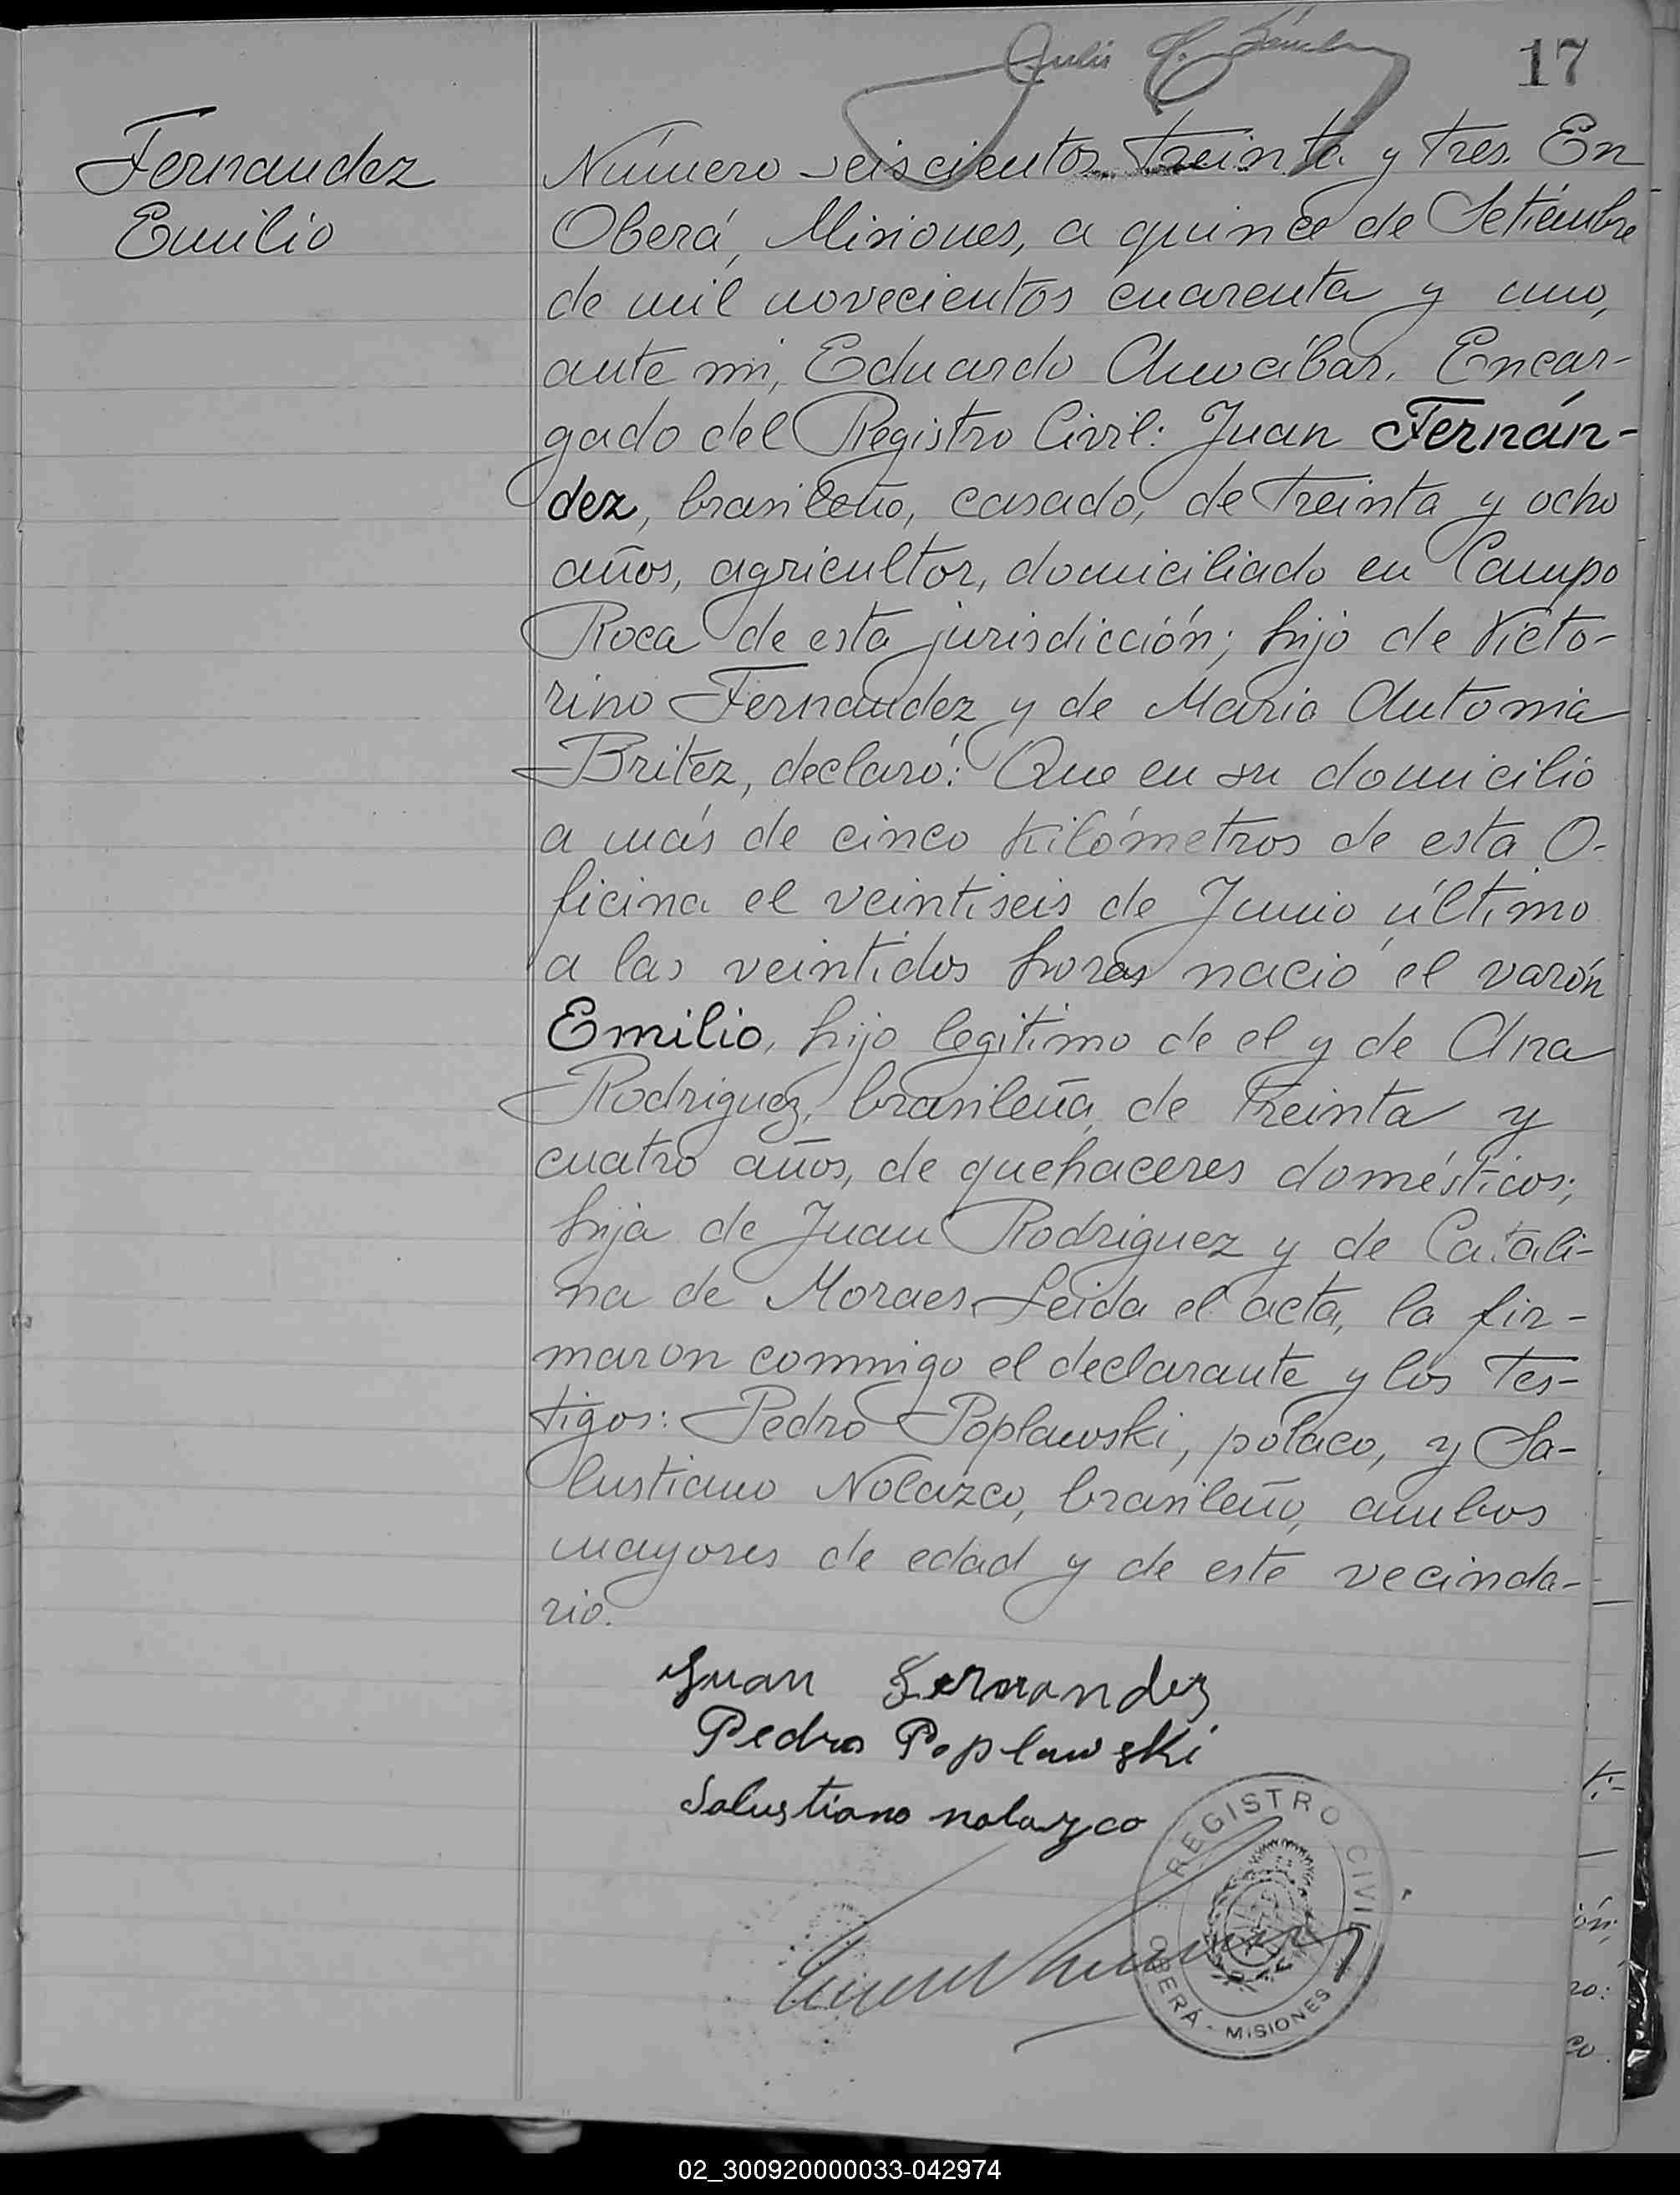 17
Fernandez
Emilio
Número seiscientos treinta y tres. En
Oberá, Misiones, a quince de Setiembre
de mil novecientos cuarenta y uno,
ante mi, Eduardo Amocibar, Encar-
gado del Registro Civil: Juan Fernán-
dez, brasileño, casado, de treinta y ocho
años, agricultor, domiciliado en Campo
Roca de esta jurisdicción; hijo de Victo-
rino Fernandez y de Maria Antonia
Britez, declaró: Que en su domicilio
a más de cinco kilómetros de esta O-
ficina el veintiseis de Junio último
a las veintidos horas nació el varón
Emilio, hijo legitimo de el y de Ana
Rodriguez, brasileña, de treinta y
cuatro años, de quehaceres domésticos;
hija de Juan Rodriguez y de Catali-
na de Moraes. Leida el acta, la fir-
maron conmigo el declarante y los tes-
tigos: Pedro Poplawski, polaco, y Sa-
lustiano Nolazco, brasileño, ambos
mayores de edad y de este vecinda-
rio.
Juan Fernandez
Pedro Poplawski
Salustiano nolazco
REGISTRO CIVIL
OBERÁ - MISIONES
02_300920000033-042974